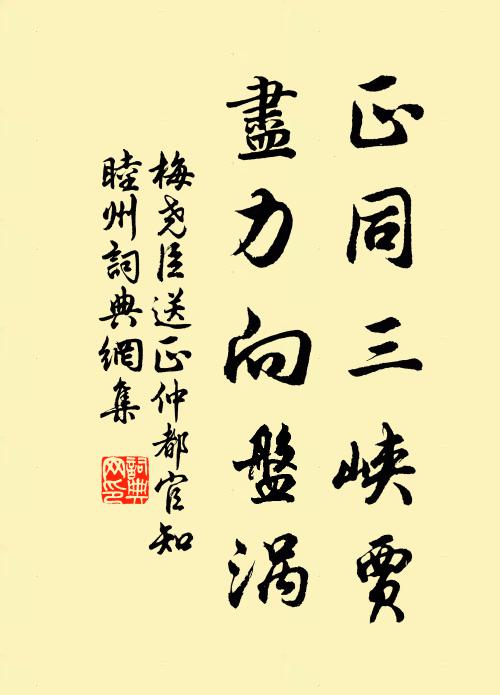 正同三峽賈
盡力向盤涡
梅尧臣送正仲都官知
睦州詞典網集
詞典网印